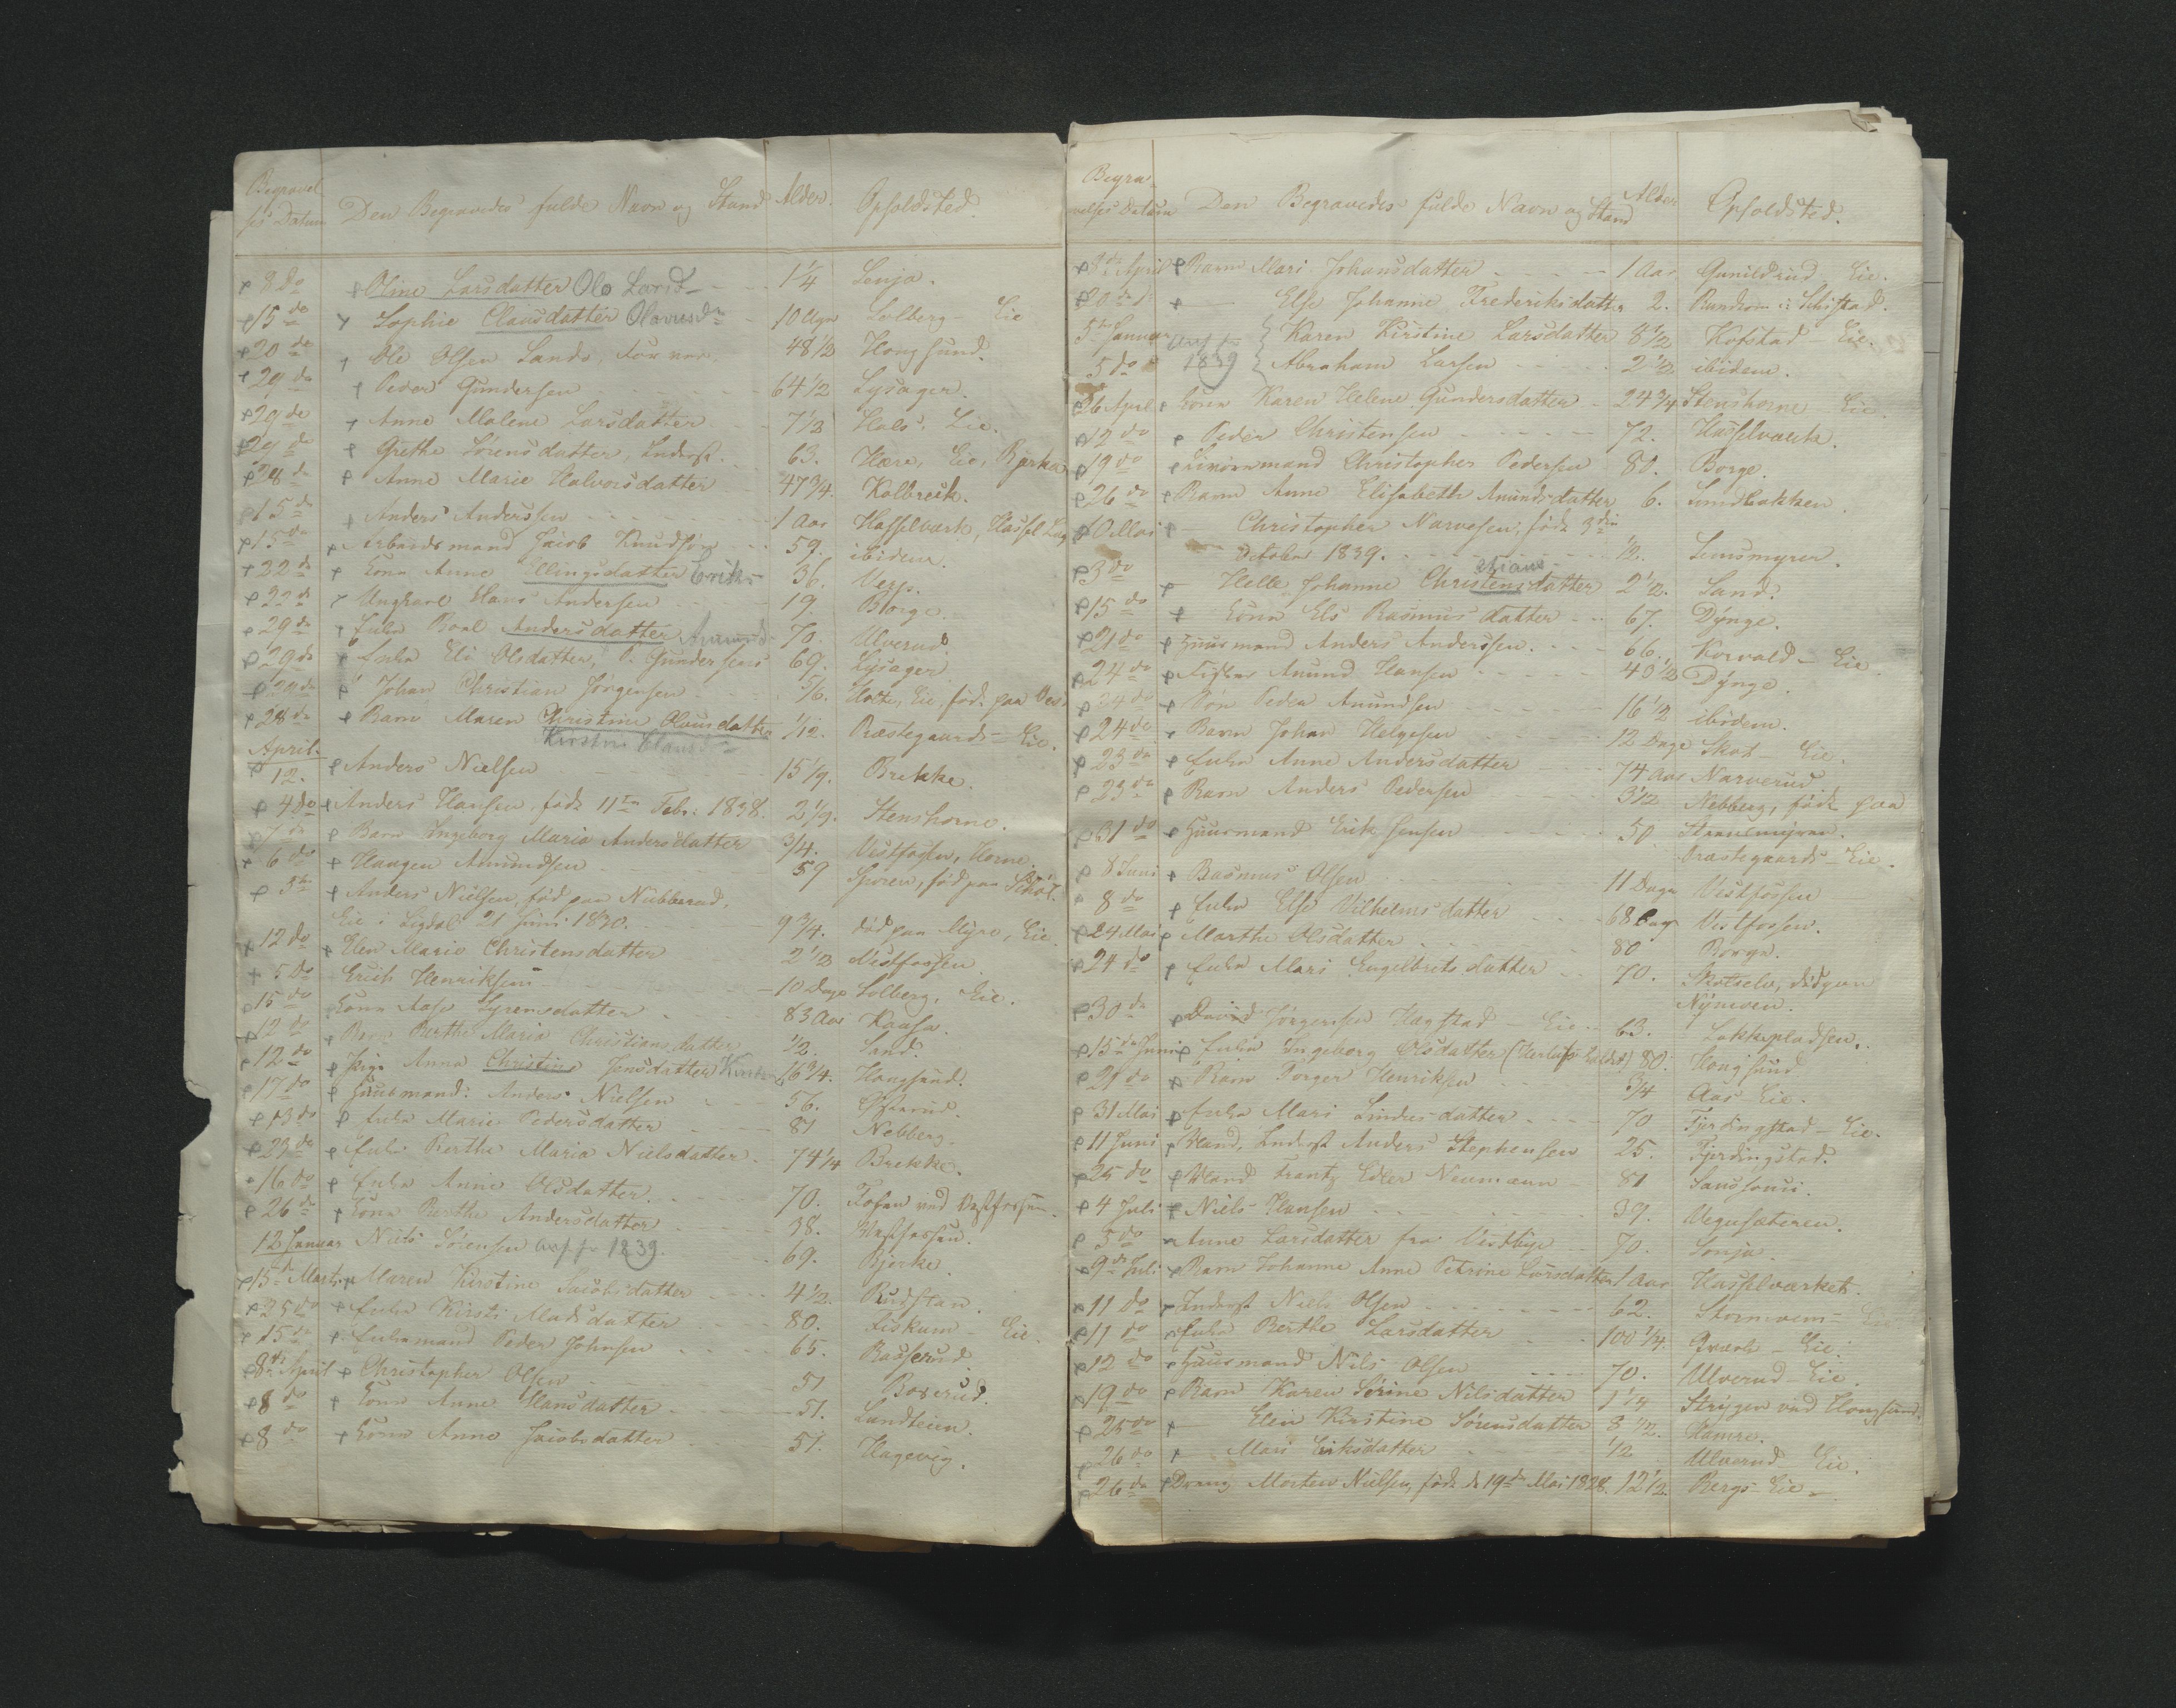 Begravel
ses Datum Den Begravedes fulde Navn og Stand Alder. Opholdsted.
8 do Oline Larsdatter Ole Larsd 1 1/4 Semja.
15 do Sophie Clausdatter Olavesdr 10 Uger Solberg Eie
20 do Ole Olsen Sande 48 1/2 Hougsund.
29 do Peder Gundersen 64 1/2 Lysager.
29 do Anne Malene Larsdatter 7 1/2 Hals. Eie.
29 do Grethe Sørensdatter, Inderst. 63. Horn, Eie, Bjerke
28 do Anne Marie Halvorsdatter 47 3/4. Kolbrek.
15 do Anders Anderssen 1 Aar Hasselværk,
15 do Arbeidsmand Jacob Knudsen 59. ibidem.
22 do Kona Anne Ellingsdatter Eriks 36. Verp.
22 do Ungkarl Hans Andersen 19. Borge.
29 do Enke Boel Andersdatter Amunds 70. Ulverud.
29 do Enke Eli Olsdatter, P. Gundersens 69. Lysager.
29 do Johan Christian Jørgensen 5/6. Holte, Eie, født paa
28 do Barn Maren Christine Olausdatter 1/12. Præstegaards Eie.
Kirstine Claus
April.
12. Anders Nielsen 15 1/9. Brekke.
4 do Anders Hansen, født 11te Febr: 1838. 2 1/9. Stenshorne.
7 do Barn Ingeborg Maria Andersdatter 3/4. Vestfossen, Horne.
6 do Haagen Amundsen 59 Sporen, født paa
5te Anders Nielsen, født paa Nubberud,
Eie i Sigdal 21 Juni 1830. 9 3/4. død paa Myre, Eie.
12 do Elen Marie Christensdatter 2 1/2 Vestfossen
5 do Erich Henriksen 10 Dage Solberg. Eie.
15 do Kona Aase Syrensdatter 83 Aar Kaasa.
12 do Barn Berthe Maria Christiansdatter 1/2. Sand.
12 do Pige Anna Christine Jensdatter Kirstine 16 3/4. Hougsund.
17 do Huusmand: Anders Nielsen 56. Østerud.
13 do Enke Marie Pedersdatter 81 Nebberg.
23 do Enke Berthe Maria Nielsdatter. 74 1/4 Brekke.
16 do Enke Anne Olsdatter. 70. Fossen ved Vestfossen.
26 do Kona Berthe Andersdatter 38. Vestfossen.
12 Januar Niels Sørensen anf. for 1839. 69. Bjerke.
15de Marts Maren Kirstine Jacobsdatter 4 1/2. Rudstan.
25 do Enke Kirsti Madsdatter 80. Fiskum Eie.
15 do Enkemand Peder Johnsen 65. Basserud.
8de April Christopher Olsen 51 Boserud.
8 do Kona Anne Hansdatter 51. Landteien.
8 do Kona Anne Jacobsdatter 51. Hagevig.
Begra-
velses Datum Den Begravedes fulde Navn og Stand Alder Opholdsted.
April Barn Mari Johansdatter 1 Aar Gunildrud Eie.
20 do Else Johanne Frederiksdatter 2.
5te Januar anf. for Karen Kirstine Larsdatter 8 1/2 Kopstad Eie.
5 do 1839 Abraham Larsen 2 1/2 ibidem.
26 April Kona Karen Helene Gundersdatter 24 3/4 Stenshorne Eie.
12 do Peder Christensen 72. Hasselværk.
19 do Christopher Pedersen 80. Borge.
26 do Barn Anne Elisabeth Amundsdatter 6. Lundbakken.
10 Mai Christopher Narvesen, født 3die
October 1839. 1/2. Lensmyren.
3 do Helle Johanne Christensdatter 2 1/2. Sand.
15 do Kona Els Rasmusdatter 67. Dynge.
21 do Huusmand Anders Anderssen. 66. Korvald Eie
24 do Fisker Anund Hansen 40 1/2 Dynge.
24 do Søn Peder Anundsen 16 1/2 ibidem.
24 do Barn Johan Helgesen 12 Dage Skot Eie.
23 do Enke Anne Andersdatter 74 Aar Narverud.
23 do Barn Anders Pedersen 3 1/2 Nebberg, født paa
Strandmyren.
31 do Huusmand Erik Jensen 50 Præstegaards Eie.
8 Juni Rasmus Olsen 11 Dage Vestfossen
8 do Enke Else Vilhelmsdatter 68 Vestfossen.
24 Mai Marthe Olsdatter 80 Borge.
24 do Enke Mari Engelbretsdatter 70. Skotselv, død paa
Nymoen.
30 do David Jørgensen Hagstad Eie 63. Lokkepladsen.
15 de Juni Enke Ingeborg Olsdatter 80. Hougsund
29 do Barn Torger Henriksen 3/4 Aas Eie.
31 Mai Enke Mari Lindersdatter 70 Fjerdingstad Eie.
11 Juni Mand, Inderst Anders Stephensen 25. Fjerdingstad.
25 do Mand Frantz Edler Neumann 81 Sanssouci.
4 Juli Niels Hansen 39. Vegusæteren.
5 do Anne Larsdatter fra Vestbye 70. Semja.
9de Juli Barn Johanne Anne Petrine Larsdatter 1 Aar Hasselværket.
11 do Inderst Niels Olsen 62. Stormoen Eie
11 do Enke Berthe Larsdatter 100 1/4. Qværk Eie.
12 do Huusmand Nils Olsen 70. Ulverud Eie.
19 do Barn Karen Sørine Nilsdatter 1 1/4 Strygen ved Hougsund.
25 do Elen Kirstine Sørensdatter 8 1/2. Hamre.
26 do Mari Eriksdatter 1/2 Ulverud Eie.
26 do Dreng Morten Nielsen, født d 19de Mai 1828. 12 1/2. Bergs Eie